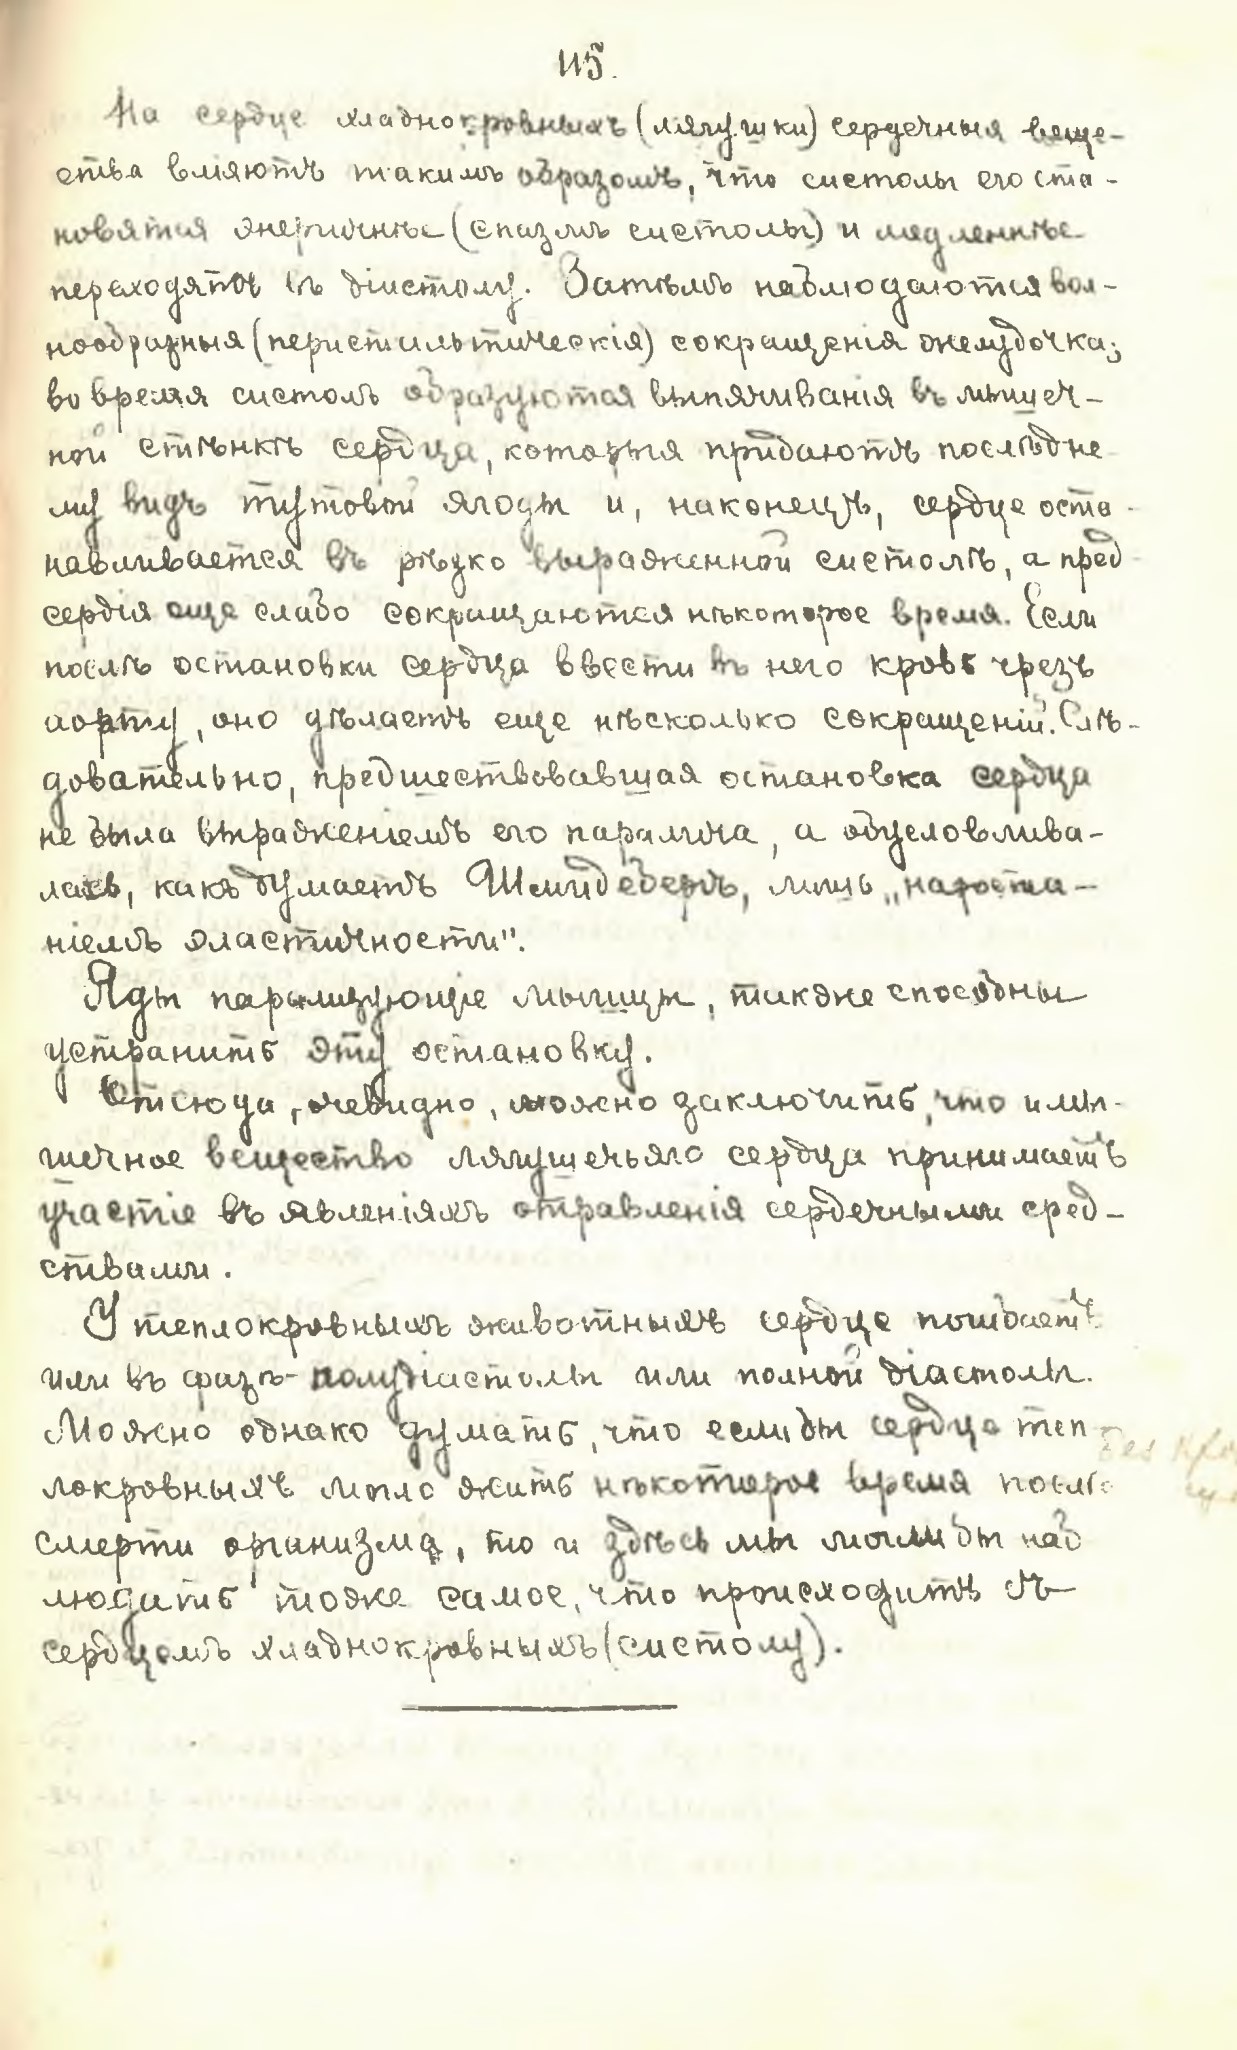 115.
На сердце хладнокровныхъ (лягушки) сердечныя веще-
ства вліяютъ такимъ образомъ, что систолы его ста-
новятся энергичнѣе (спазмъ систолы) и медленнѣе
переходятъ въ діастолу. Затѣмъ наблюдаются вол-
нообразныя (перистальтическія) сокращенія желудочка;
во время систолъ образуются выпячиванія въ мышеч-
ной стѣнкѣ сердца, которыя придаютъ послѣдне
му видъ тутовой ягоды и, наконецъ, сердце оста-
навливается въ рѣзко выраженной систолѣ, а пред
сердія еще слабо сокращаются нѣкоторое время. Если
послѣ остановки сердца ввести въ него кровь чрезъ
аорту, оно дѣлаетъ еще нѣсколько сокращеній. Слѣ-
довательно, предшествовавшая остановка сердца
не была выраженіемъ его паралича, а обусловлива-
лась, какъ думаетъ Шмидебергъ, лишь „нароста-
ніемъ эластичности".
Яды парализующіе мышцы, также способны
устранить эту остановку.
Отсюда, очевидно, можно заключить, что и мы-
шечное вещество лягушечьяго сердца принимаетъ
участіе въ явленіяхъ отравленія сердечными сред-
ствами.
У теплокровныхъ животныхъ сердце погибаетъ
или въ фазѣ полудіастолы или полной діастолы.
Можно однако думать, что если бы сердце теп-
локровныхъ могло жить нѣкоторое время послѣ
смерти организма, то и здѣсь мы могли бы наб
людать тоже самое, что происходитъ съ
сердцемъ хладнокровныхъ (систолу).